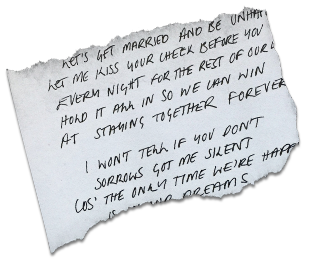 LET'S GET MARRIED AND BE UNHA
LET ME KISS YOUR CHEEK BEFORE YOU
EVERY NIGHT FOR THE REST OF OUR L
HOLD IT ALL IN SO WE CAN WIN
AT STAYING TOGETHER FOREVER
I WON'T TELL IF YOU DON'T
SORROWS GOT ME SILENT
COS' THE ONLY TIME WE'RE HAPP
DREAMS